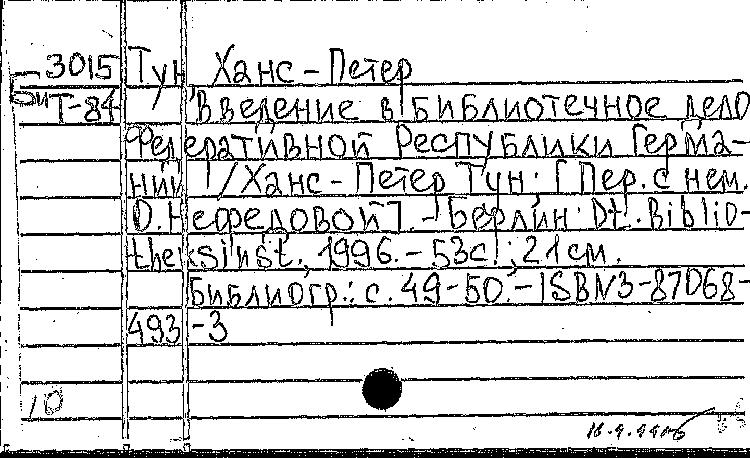 3015 Тун, Ханс-Петер
Би Т-84 Введение в библиотечное дело
Федеративной Республики Герма-
нии / Ханс-Петер Тун; [Пер. с нем.
О. Нефедовой]. - Берлин: Dt. Biblio-
theksinst., 1996. - 53с.; 21см.
Библиогр.: с. 49-50. - ISBN 3-87068-
493-3
10